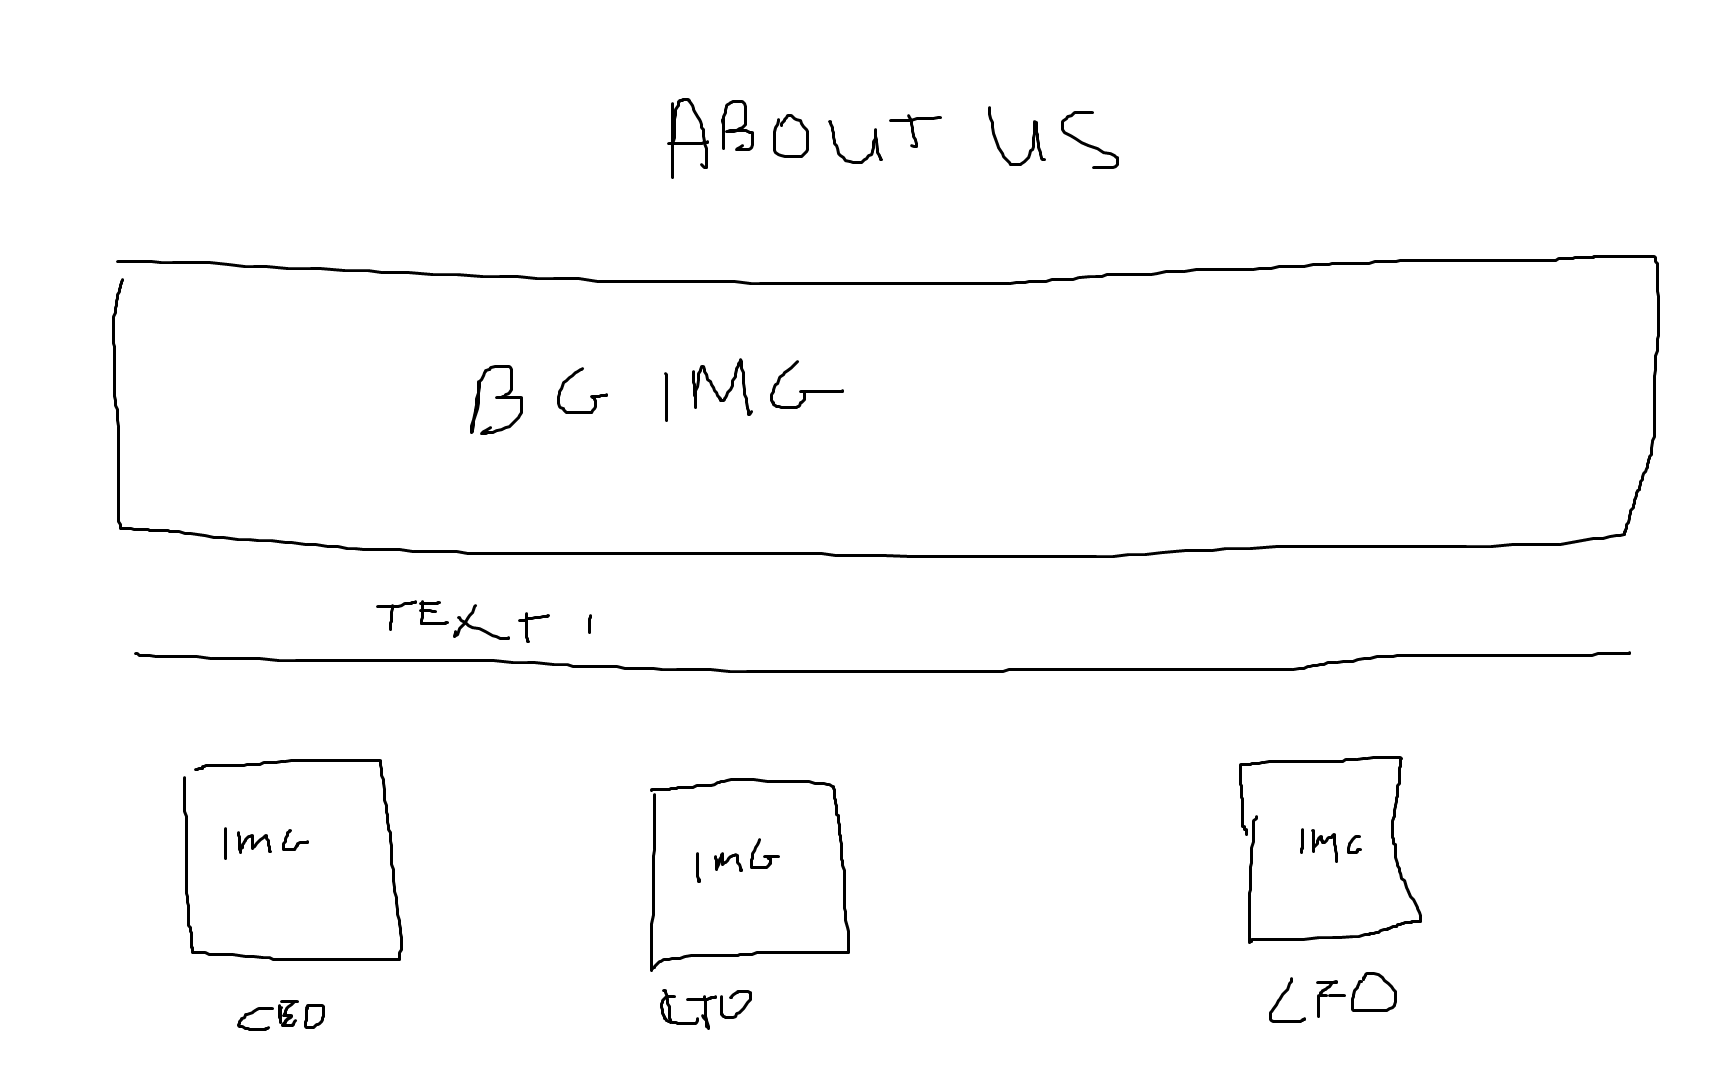 ABOUT US
BG IMG
TEXT 1
IMG IMG IMG
CEO CTO CFO